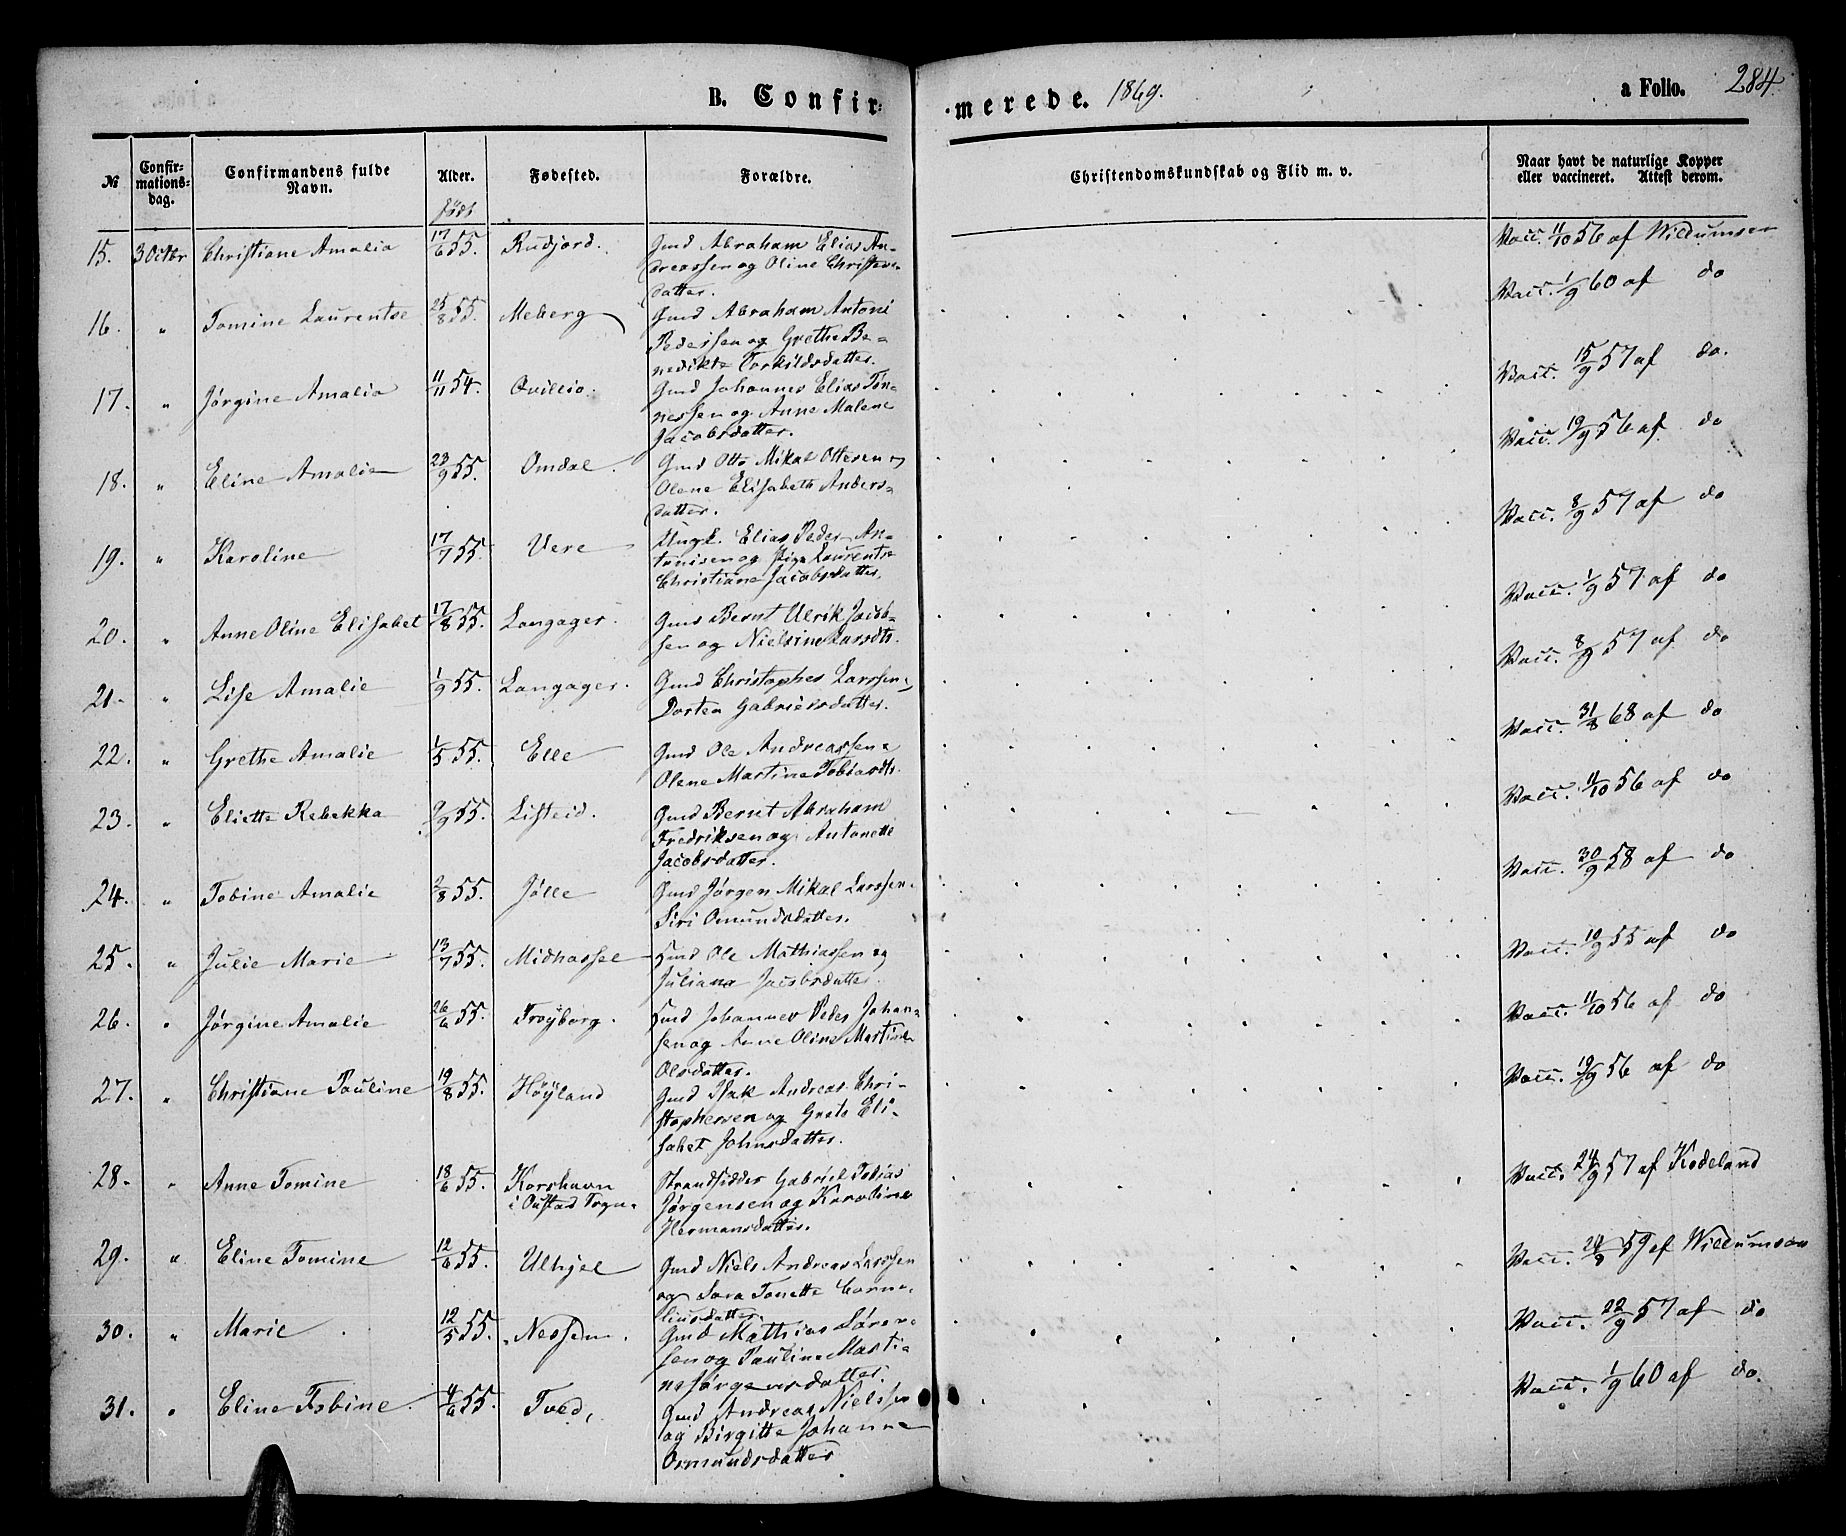 B. Confir-
merede. 1869.
a Folio. 284.
№
Confir-
mations-
dag.
Confirmandens fulde
Navn.
Alder.
født
Fødested.
Forældre.
Christendomskundskab og Flid m. v.
Naar havt de naturlige Kopper
eller vaccineret. Attest derom.
15. 3 Octbr Christiane Amalia 17/6 55. Rudjord. Gmd Abraham Elias An-
dreassen og Oline Christens-
datter.
Vacc. 11/10 56 af Willumsen
16. " Tomine Laurentse 25/8 55. Meberg Gmd Abraham Antoni
Pedersen og Grethe Be-
nedikte Torkildsdatter.
Vacc. 1/9 60 af do
17. " Jørgine Amalia 11/11 54. Qvillio. Gmd Johannes Elias Tøn-
nessen og Anne Malene
Jacobsdatter.
Vacc. 15/9 57 af do.
18. " Eline Amalie 23/9 55. Omdal. Gmd Otto Mikal Ottesen og
Olene Elisabeth Anders-
datter.
Vacc. 19/9 56 af do
19. " Karoline 17/7 55. Vere Ungk. Elias Peder An-
tonisen og Pige Laurentse
Christiane Jacobsdatter.
Vacc. 8/9 57 af do
20. " Anne Oline Elisabet 17/8 55. Langager. Gmd Bernt Ulrik Jacob-
sen og Nielsine Larsdtr.
Vacc. 1/9 57 af do
21. " Lise Amalie 1/9 55. Langager. Gmd Christopher Larssen og
Dorten Gabrielsdatter.
Vacc. 8/9 57 af do
22. " Grethe Amalie 1/5 55. Elle Gmd Ole Andreassen og
Olene Martine Tobiasdtr.
Vacc. 31/8 68 af do
23. " Eliette Rebekka 9/9 55. Listeid. Gmd Bernt Abraham
Fredriksen og Antonette
Jacobsdatter.
Vacc. 11/10 56 af do
24. " Tobine Amalie 2/8 55. Jølle Gmd Jørgen Mikal Larssen.
Siri Omundsdatter.
Vacc. 30/9 58 af do
25. " Julie Marie 13/7 55. Midhassel Gmd Ole Mathiassen og
Juliana Jacobsdatter.
Vacc. 10/9 55 af do
26. " Jørgine Amalie 26/6 55. Frøyborg. Gmd Johannes Peder Johan-
sen og Anne Oline Martine
Olsdatter.
Vacc. 11/10 56 af do
27. " Christiane Pauline 19/8 55. Høyland Gmd Isak Andreas Chri-
stophersen og Grete Eli-
sabet Johnsdatter.
Vacc. 19/9 56 af do
28. " Anne Tomine 18/6 55. Korshavn
i Oustad Sogn. Strandsidder Gabriel Tobias
Jørgensen og Karoline
Hermansdatter.
Vacc. 24/9 57 af Kodeland
29. " Eline Tomine 12/6 55. Ulhjel Gmd Niels Andreas Larssen
og Sara Tonette Corne-
liusdatter.
Vacc. 24/9 59 af Willumsen
30. " Marie 12/5 55. Nessem. Gmd Mathias Søren-
sen og Pauline Marti-
ne Jørgensdatter.
Vacc. 22/9 57 af do
31. " Eline Tobine 4/6 55. Tved, Gmd Andreas Nielssen
og Birgitte Johanne
Osmundsdatter
Vacc. 1/9 60 af do.